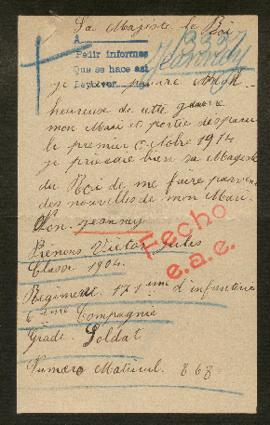 Sa Majesté le Roi
A
Pedir informes
Que se hace así
je
heureuse de cette guerre
mon Mari et portie disparu
le premier octobre 1914
je prie bien sa Majesté
du Roi de me faire parvenir
des nouvelles de mon Mari
Non. Jeannay
Hecho
e.a.e.
Prenons Victor Jules
Classe 1904.
Regiment. 171 eme d'infanterie
Compagnie
Grade. Soldat
Numaro Matricul. 868